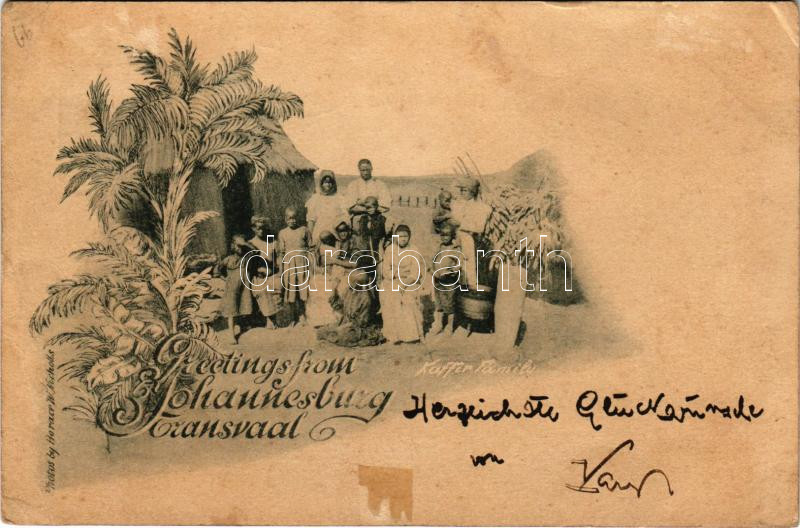 Greetings from
Johannesburg
Transvaal
Kaffer Family
Photos by Horace W. Nicholls
darabanth
.com
Herzlichste Glückwünsche
von Karl